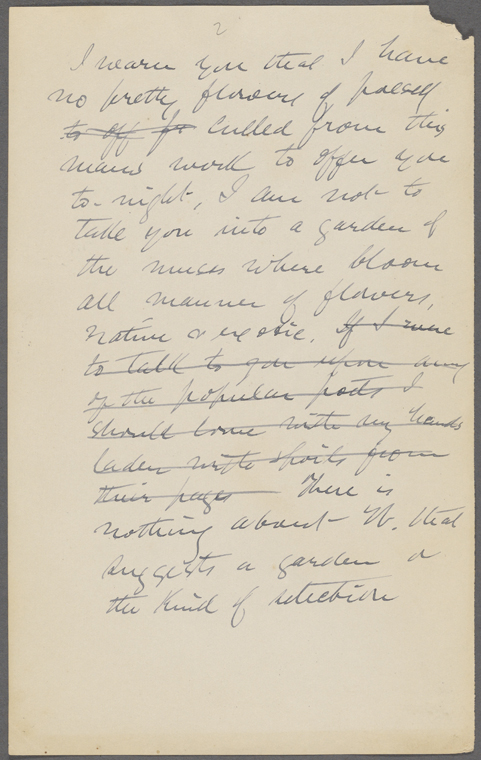 2
I warn you that I have
no pretty flowers of poesy
to off fr culled from this
mans work to offer you
to-night, I am not to
take you into a garden of
the muses where bloom
all manner of flowers,
native & exotic. If I were
to talk to you upon any
of the popular poets I
should come with my hands
laden with spoils from
their pages There is
nothing about W. that
suggests a garden or
the kind of selection